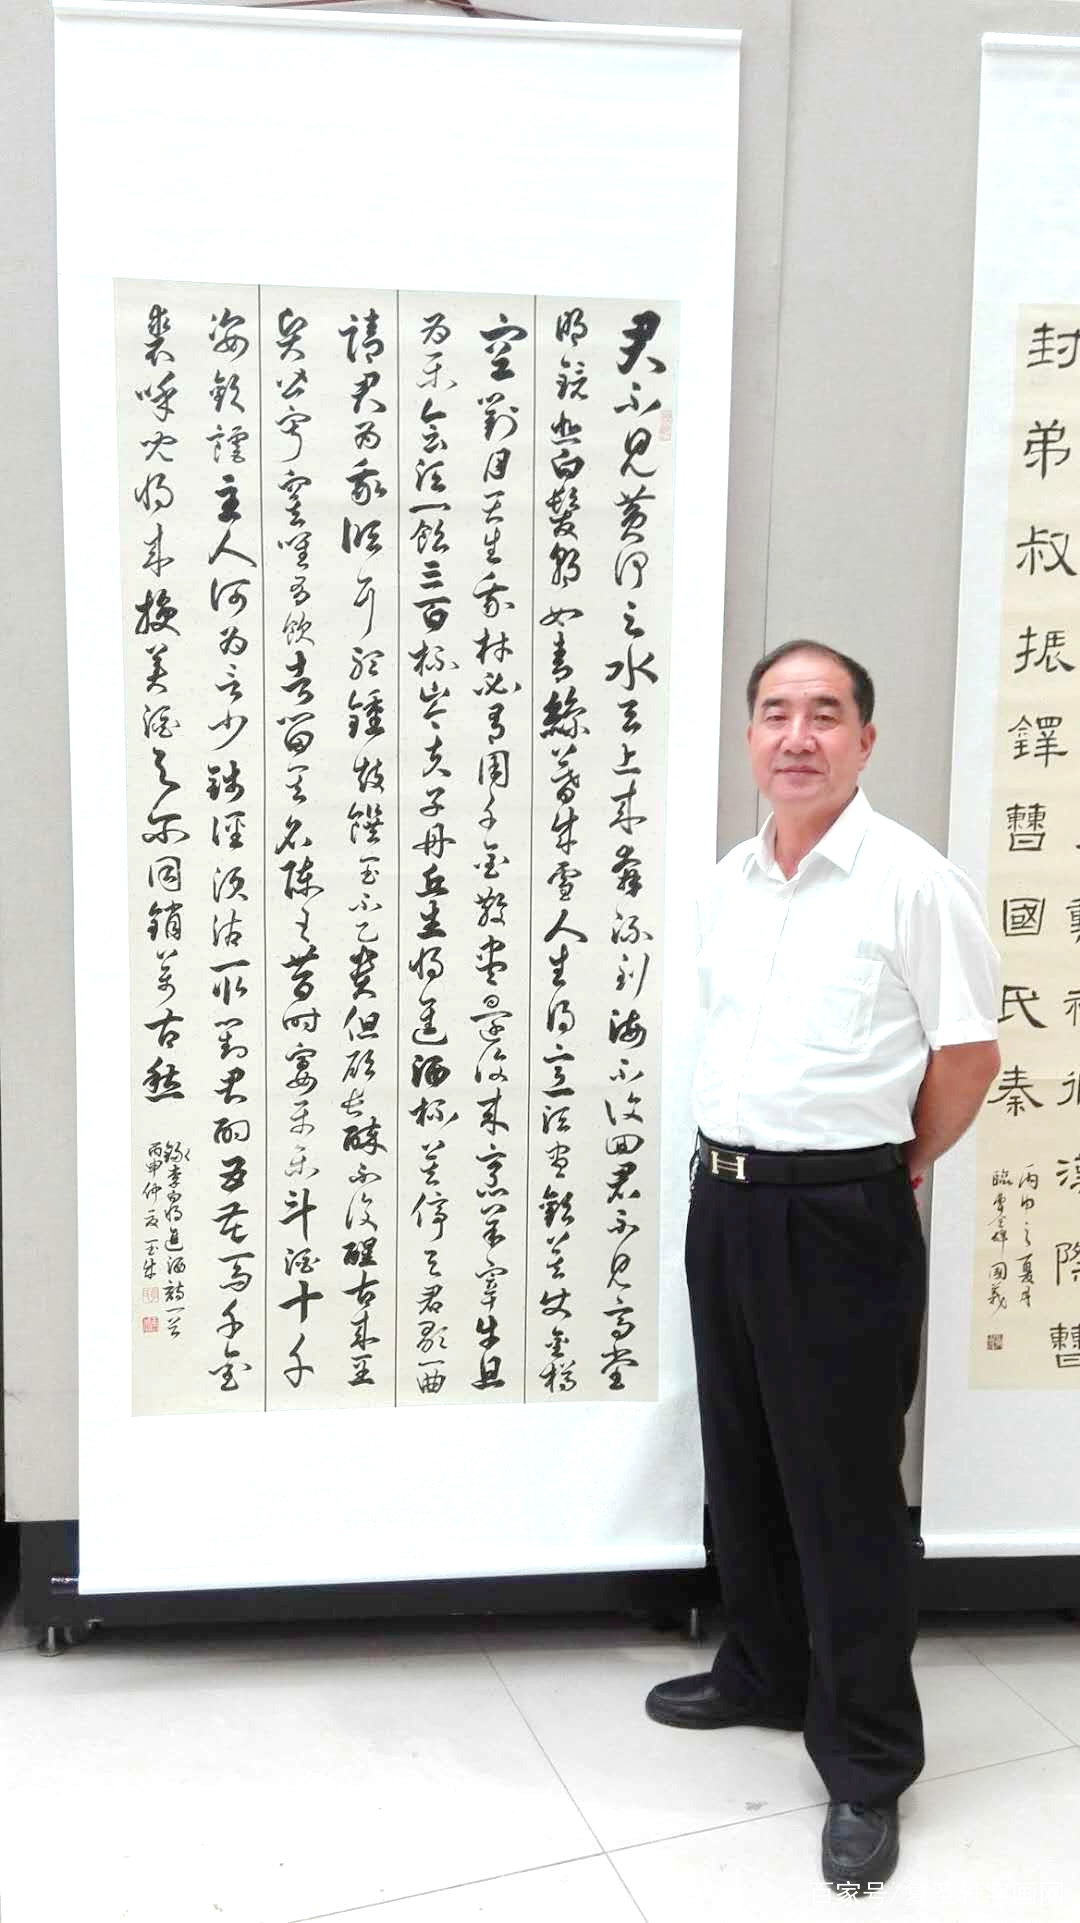 君不見黃河之水天上來奔流到海不復回君不見高堂
明鏡悲白髮朝如青絲暮成雪人生得意須盡歡莫使金樽
空對月天生我材必有用千金散盡還復來烹羊宰牛且
為樂會須一飲三百杯岑夫子丹丘生將進酒杯莫停与君歌一曲
請君為我傾耳聽鍾鼓饌玉不足貴但願長醉不復醒古來聖
賢皆寂寞唯有飲者留其名陳王昔時宴平樂斗酒十千
恣歡謔主人何為言少錢徑須沽取對君酌五花馬千金
裘呼兒將來換美酒与尔同銷萬古愁
錄李白將進酒詩一首
丙申仲夏
漢際曹
封弟叔振鐸曹國氏秦
丙申之夏月
臨曹全碑國義
百家号